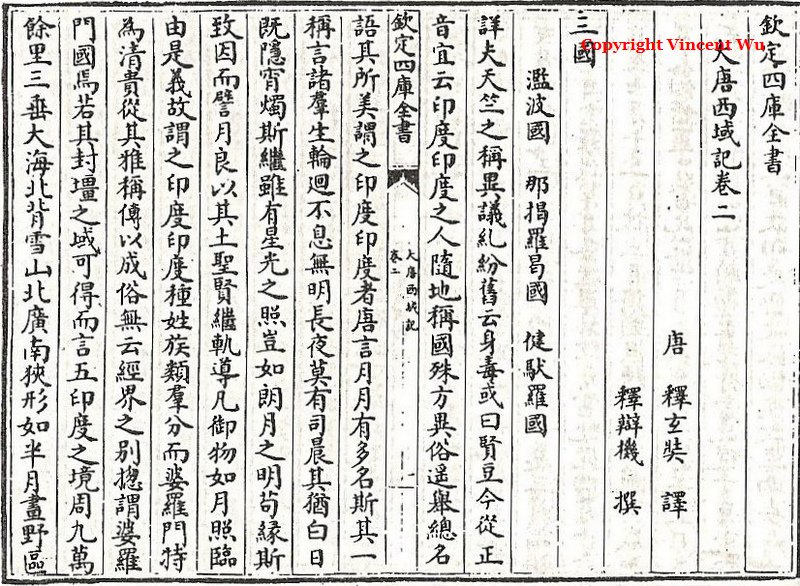 Copyright Vincent Wu
欽定四庫全書
大唐西域記卷二
唐 釋玄奘 譯
釋辯機 撰
三國
濫波國 那揭羅曷國 健馱羅國
詳夫天竺之稱異議糺紛舊云身毒或曰賢豆今從正
音宜云印度印度之人隨地稱國殊方異俗遥舉總名
欽定四庫全書
大唐西域記
卷二
一
語其所美謂之印度印度者唐言月月有多名斯其一
稱言諸羣生輪迴不息無明長夜莫有司晨其猶白日
既隱宵燭斯繼雖有星光之照豈如朗月之明苟緣斯
致因而譬月良以其土聖賢繼軌導凡御物如月照臨
由是義故謂之印度印度種姓族類羣分而婆羅門特
為清貴從其雅稱傳以成俗無云經界之別揔謂婆羅
門國焉若其封壃之域可得而言五印度之境周九萬
餘里三垂大海北背雪山北廣南狹形如半月畫野區